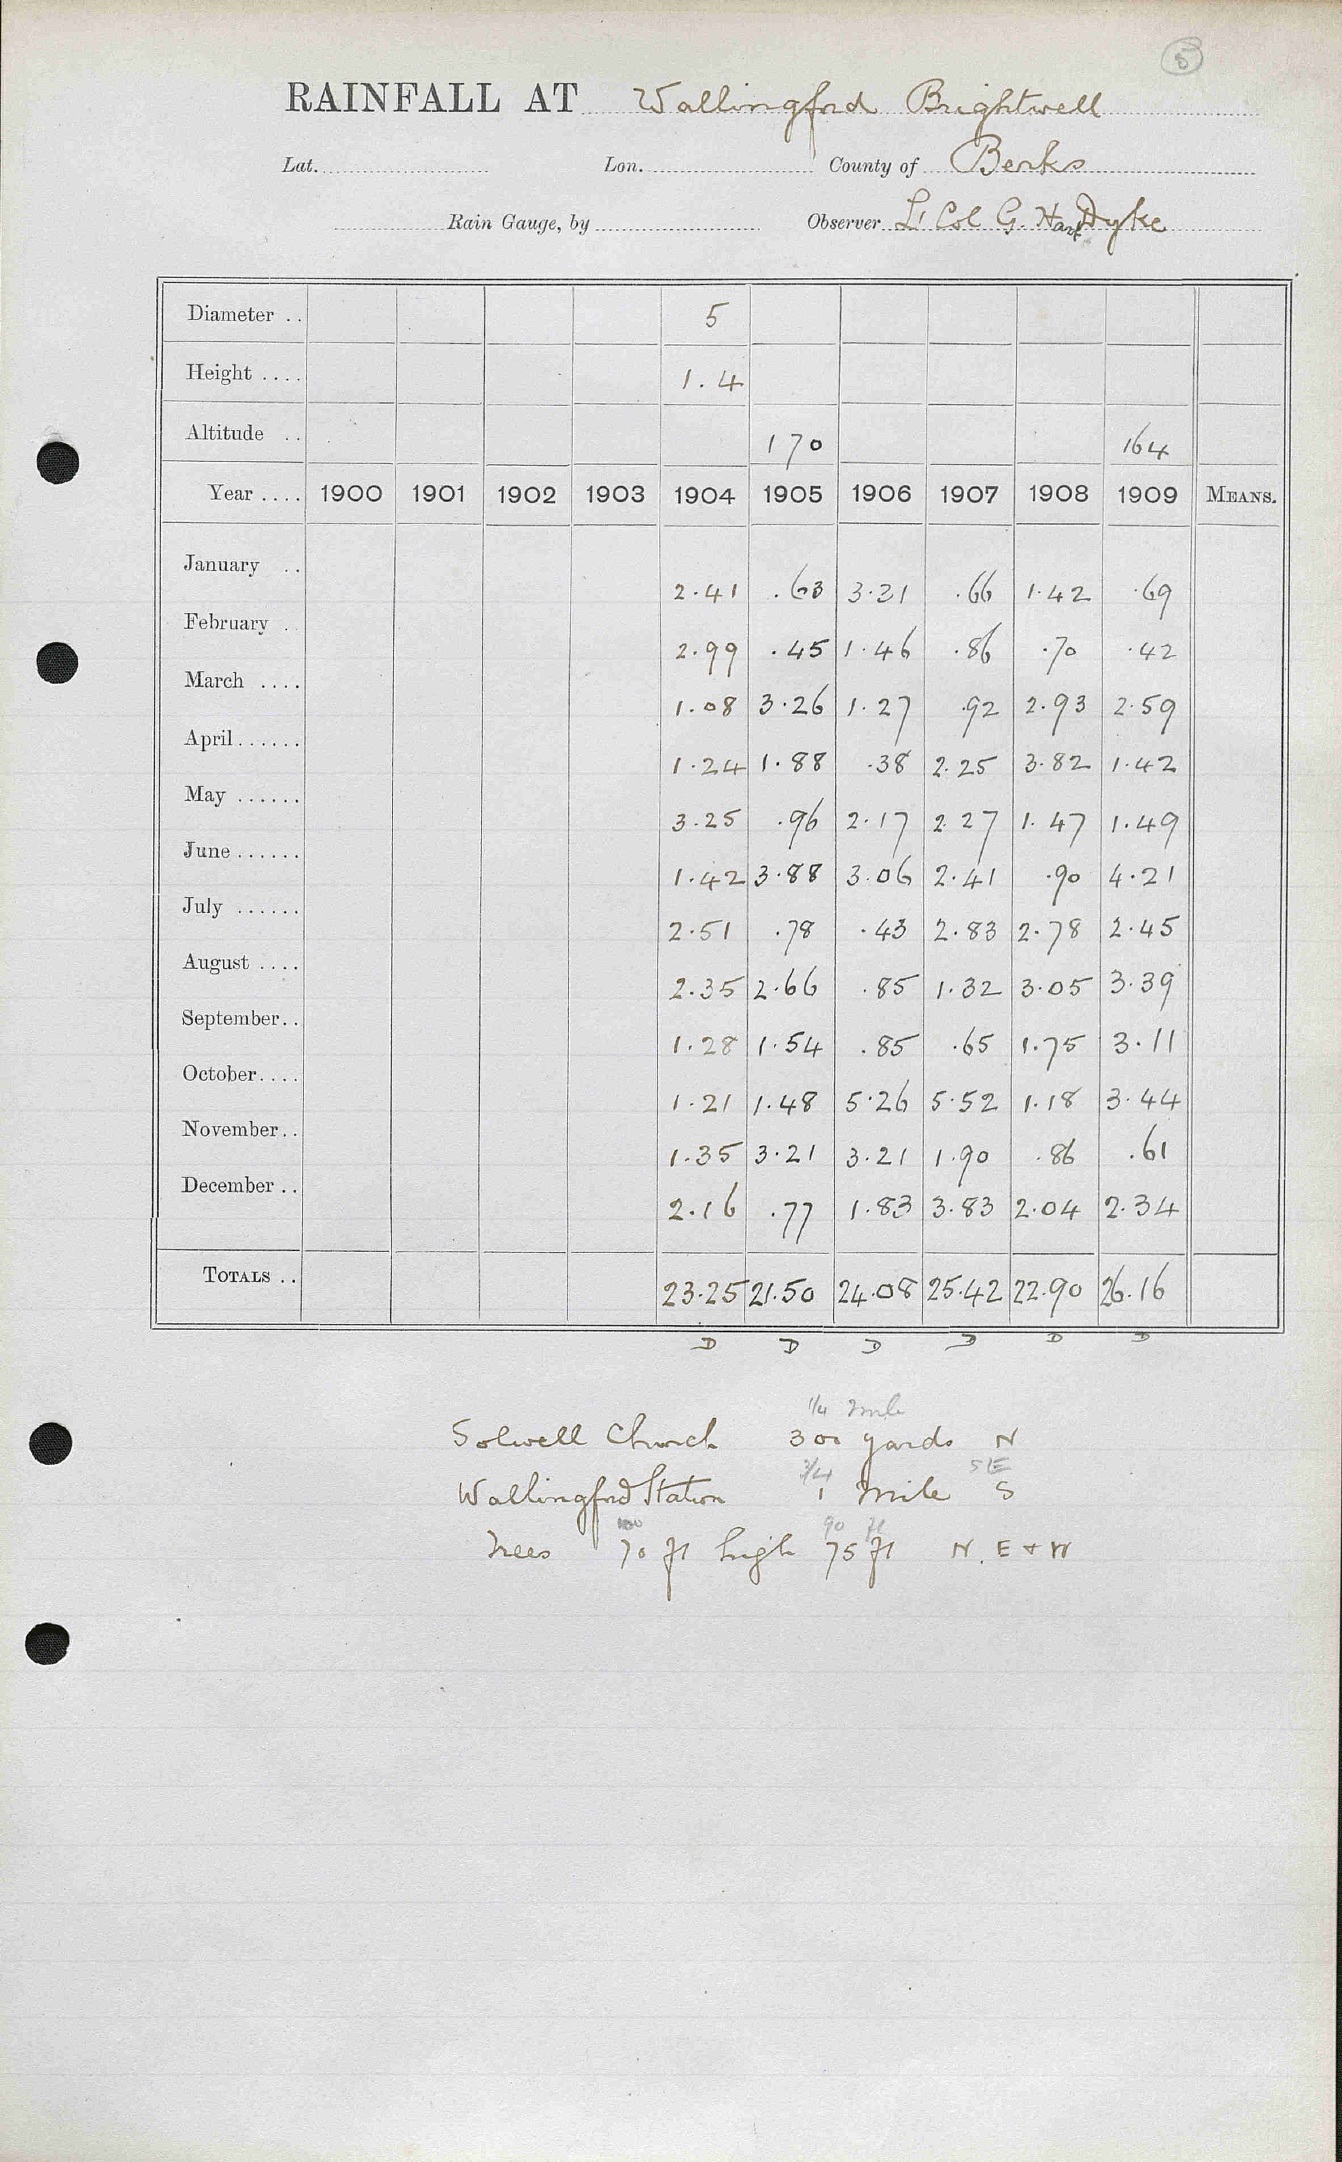 5
RAINFALL AT Wallingford Brightwell
Lat. Lon. County of Berks
Rain Gauge, by Observer Lt Col G. Hart Dyke
Diameter .. 5
Height .... 1.4
Altitude .. 170 164
Year .... 1900 1901 1902 1903 1904 1905 1906 1907 1908 1909 MEANS.
January .. 2.41 .63 3.31 .66 1.42 .69
February . 2.99 .45 1.46 .86 .70 .42
March .... 1.08 3.26 1.27 .92 2.93 2.59
April...... 1.24 1.88 .38 2.25 3.82 1.42
May ...... 3.25 .96 2.17 2.27 1.47 1.49
June...... 1.42 3.88 3.06 2.41 .90 4.21
July ...... 2.51 .78 .43 2.83 2.78 2.45
August .... 2.35 2.66 .85 1.32 3.05 3.39
September.. 1.28 1.54 .85 .65 1.75 3.11
October.... 1.21 1.48 5.26 5.52 1.18 3.44
November.. 1.35 3.21 3.21 1.90 .86 .61
December .. 2.16 .77 1.83 3.83 2.04 2.34
TOTALS .. 23.25 21.50 24.08 25.42 22.90 26.16
D D D D D D
1/4 mile
Solwell Church 300 yards N
3/4 SE
Wallingford Station 1 Mile S
100 90 ft
Trees 70 ft high 75 ft N. E + W